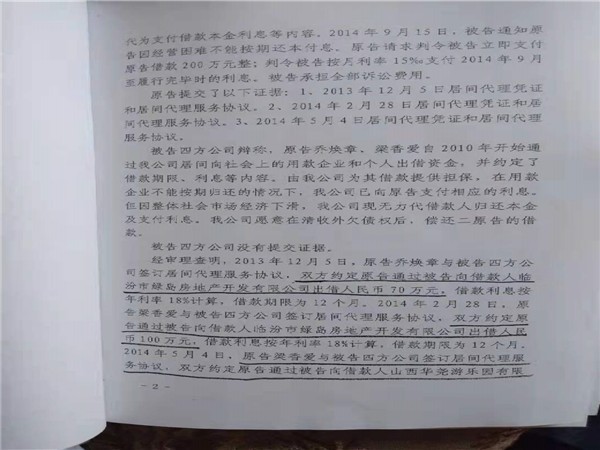 代为支付借款本金利息等内容。2014年9月15日，被告通知原
告因经营困难不能按期还本付息。原告请求判令被告立即支付
原告借款200万元整；判令被告按月利率15‰支付2014年9月
至履行完毕时的利息。被告承担全部诉讼费用。
原告提交了以下证据：1、2013年12月5日居间代理凭证
和居间代理服务协议。2、2014年2月28日居间代理凭证和居
间代理服务协议。3、2014年5月4日居间代理凭证和居间代理
服务协议。
被告四方公司辩称，原告乔焕章、梁香爱自2010年开始通
过我公司居间向社会上的用款企业和个人出借资金，并约定了
借款期限、利息等内容。由我公司为其借款提供担保。在用款
企业不能按期归还的情况下，我公司已向原告支付相应的利息。
但因整体社会市场经济下滑，我公司现无力代借款人归还本金
及支付利息。我公司愿意在清收外欠债权后，偿还二原告的借
款。
被告四方公司没有提交证据。
经审理查明，2013年12月5日，原告乔焕章与被告四方公
司签订居间代理服务协议，双方约定原告通过被告向借款人临
汾市绿岛房地产开发有限公司出借人民币70万元，借款利息按
年利率18%计算，借款期限为12个月。2014年2月28日，原
告梁香爱与被告四方公司签订居间代理服务协议，双方约定原
告通过被告向借款人临汾市绿岛房地产开发有限公司出借人民
币100万元，借款利息按年利率18%计算，借款期限为12个月。
2014年5月4日，原告梁香爱与被告四方公司签订居间代理服
务协议，双方约定原告通过被告向借款人山西华尧游乐园有限
-2-